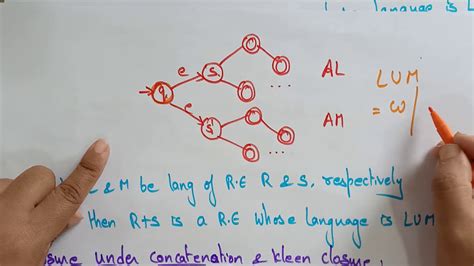 language is L
e S AL
q
e S AM
LUM
= ω |
L & M be lang of R.E R & S, respectively
then R+S is a R.E whose language is LUM
sure under concatenation & kleen closure.